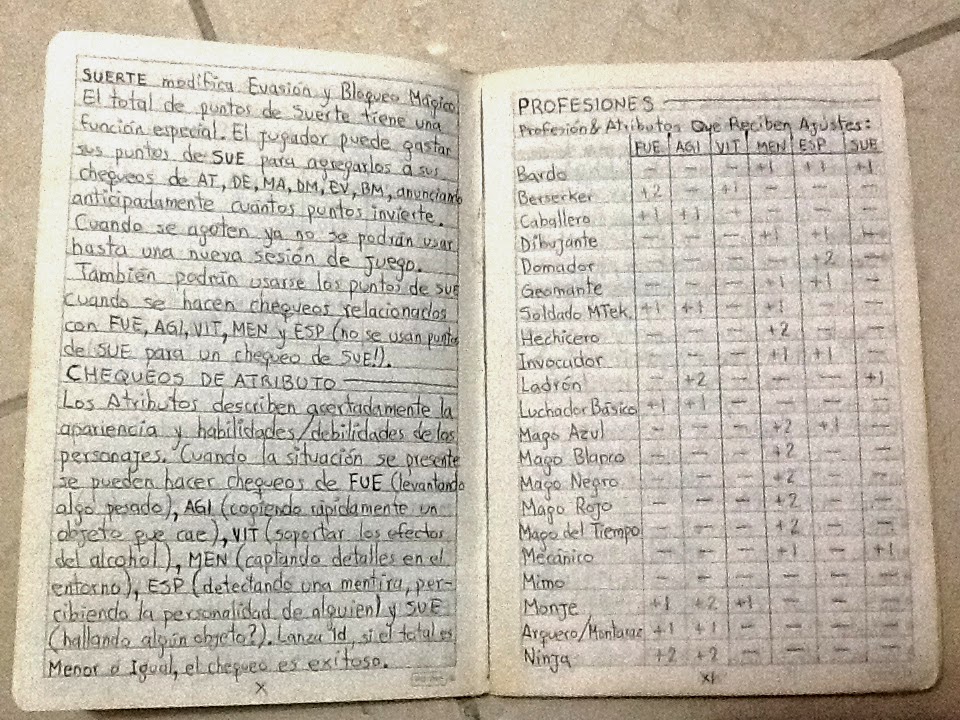 SUERTE modifica Evasión y Bloqueo Mágico.
El total de puntos de Suerte tiene una
función especial. El jugador puede gastar
sus puntos de SUE para agregarlos a sus
chequeos de AT, DE, MA, DM, EV, BM, anunciando
anticipadamente cuántos puntos invierte.
Cuando se agoten ya no se podrán usar
hasta una nueva sesión de juego.
También podrán usarse los puntos de SUE
cuando se hacen chequeos relacionados
con FUE, AGI, VIT, MEN y ESP (no se usan puntos
de SUE para un chequeo de SUE!).
CHEQUEOS DE ATRIBUTO
Los Atributos describen acertadamente la
apariencia y habilidades/debilidades de los
personajes. Cuando la situación se presente
se pueden hacer chequeos de FUE (levantando
algo pesado), AGI (cogiendo rápidamente un
objeto que cae), VIT (soportar los efectos
del alcohol), MEN (captando detalles en el
entorno), ESP (detectando una mentira, per-
cibiendo la personalidad de alguien) y SUE
(hallando algún objeto?). Lanza 1d, si el total es
Menor o Igual, el chequeo es exitoso.
X
PROFESIONES
Profesión & Atributos Que Reciben Ajustes:
FUE AGI VIT MEN ESP SUE
Bardo — — — +1 +1 +1
Berserker +2 — +1 — — —
Caballero +1 +1 + — — —
Dibujante — — — +1 +1 —
Domador — — — — +2 —
Geomante — — — +1 +1 —
Soldado MTek +1 +1 — +1 — —
Hechicero — — — +2 — —
Invocador — — — +1 +1 —
Ladrón — +2 — — — +1
Luchador Básico +1 +1 — — — —
Mago Azul — — — +2 +1 —
Mago Blanco — — — +2 — —
Mago Negro — — — +2 — —
Mago Rojo — — — +2 — —
Mago del Tiempo — — — +2 — —
Mecánico — — — +1 — +1
Mimo — — — — — —
Monje +1 +2 +1 — — —
Arquero/Montaraz +1 +1 — — — —
Ninja +2 +2 — — — —
XI